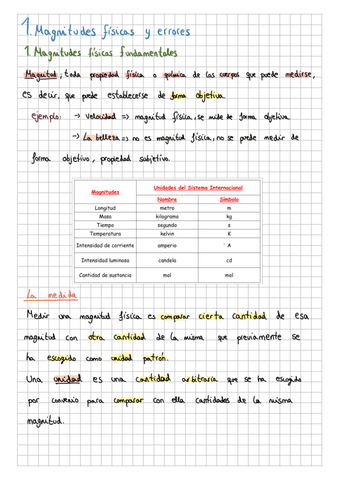 1. Magnitudes físicas y errores
1. Magnitudes físicas fundamentales
Magnitud: toda propiedad física o química de los cuerpos que puede medirse,
es decir, que puede establecerse de forma objetiva.
ejemplo: → velocidad => magnitud física, se mide de forma objetiva
→ La belleza => no es magnitud física, no se puede medir de
forma objetivo, propiedad subjetivo.
Magnitudes Unidades del Sistema Internacional
Nombre Símbolo
Longitud metro m
Masa kilogramo kg
Tiempo segundo s
Temperatura kelvin K
Intensidad de corriente amperio ´ A
Intensidad luminosa candela cd
Cantidad de sustancia mol mol
La medida
Medir una magnitud física es comparar cierta cantidad de esa
magnitud con otra cantidad de la misma que previamente se
ha escogido como unidad patrón.
Una unidad es una cantidad arbitraria que se ha escogido
por convenio para comparar con ella cantidades de la misma
magnitud.